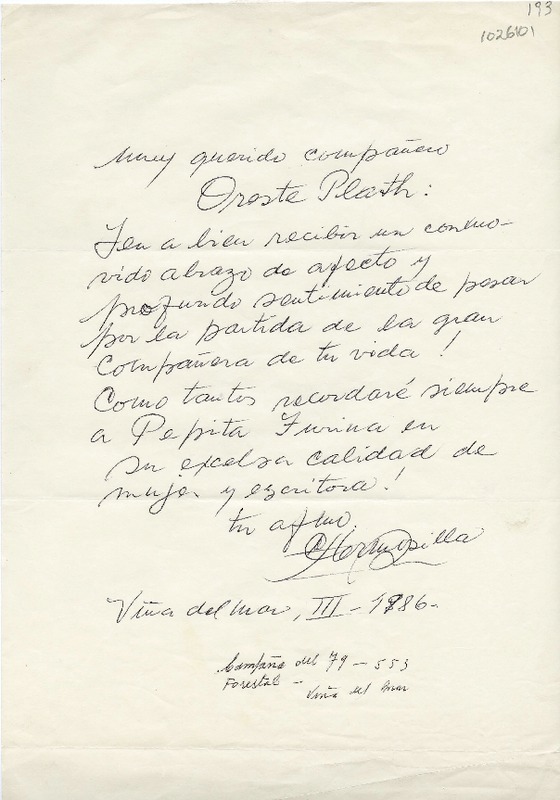 193
1026101
Muy querido compañero
Oreste Plath:
Ten a bien recibir un conmo-
vido abrazo de afecto y
profundo sentimiento de pesar
por la partida de la gran
compañera de tu vida!
Como tantos recordaré siempre
a Pepita Turina en
su excelsa calidad de
mujer y escritora!
tu afmo.
CHermosilla
Viña del Mar, III - 1986-
Campaña del 79 - 553
Forestal -
Viña del Mar